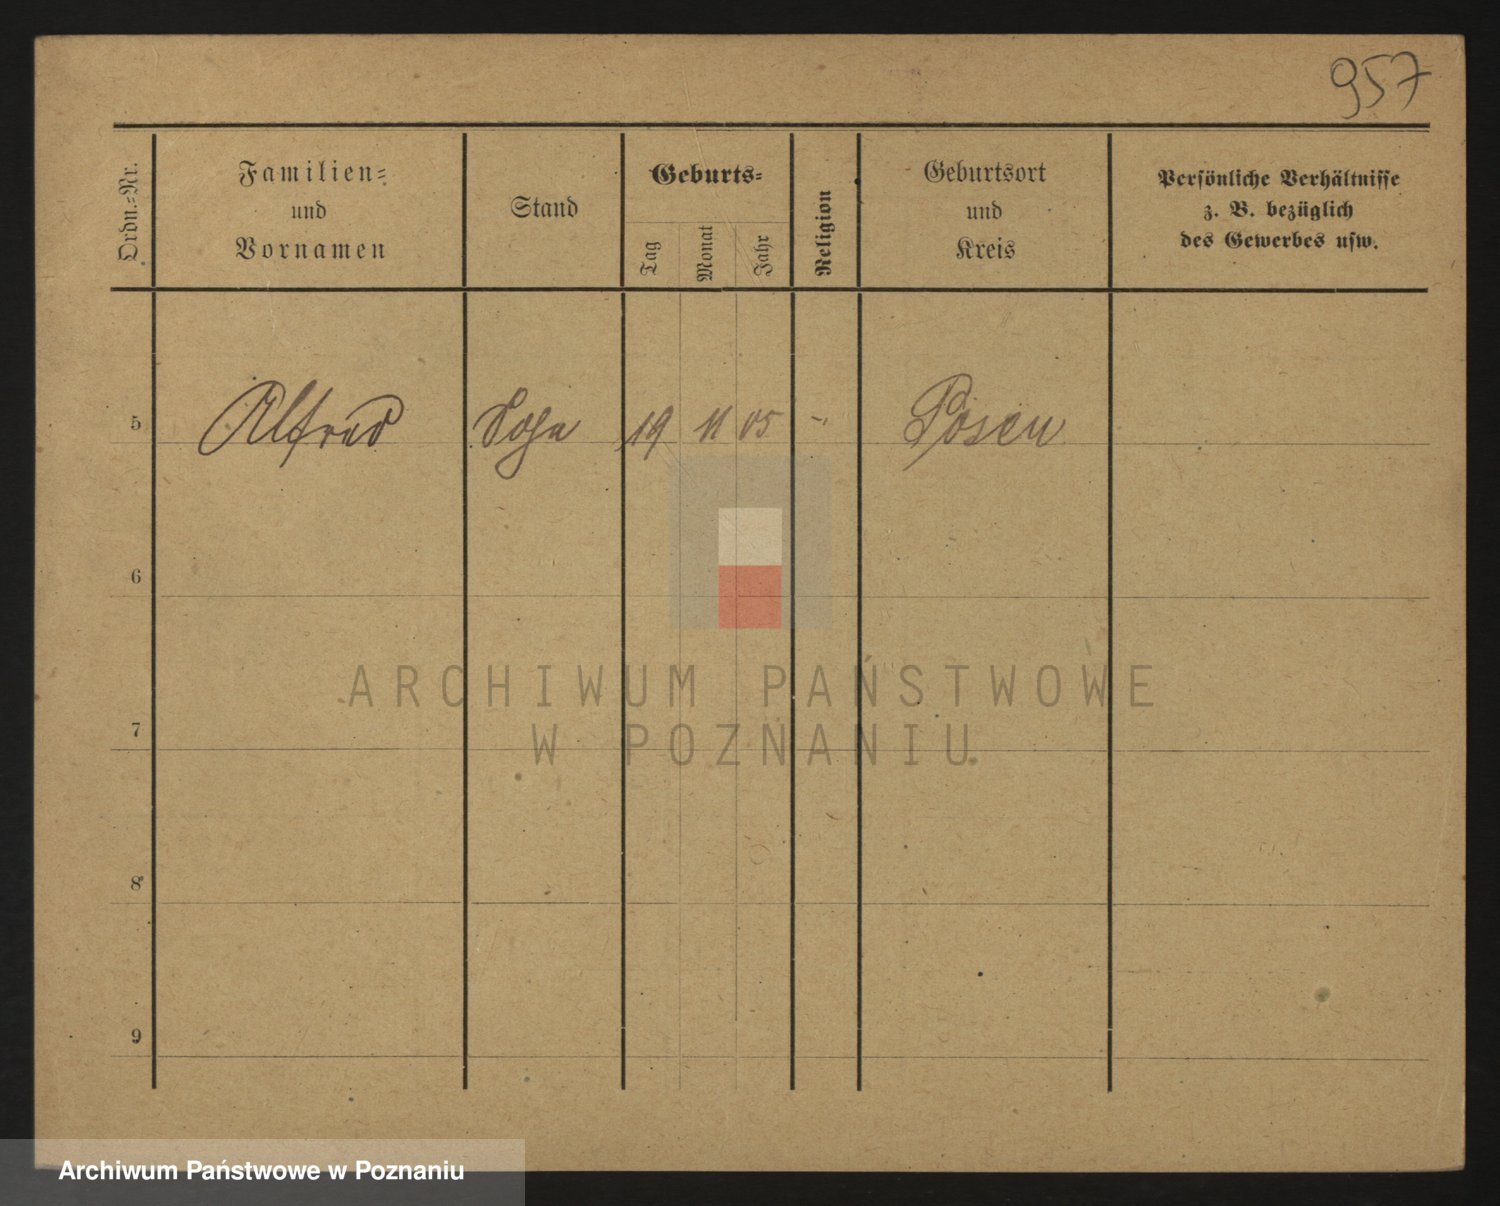 957
Ordn.-Nr.
Familien-
und
Vornamen
Stand
Geburts-
Tag
Monat
Jahr
Religion
Geburtsort
und
Kreis
Persönliche Verhältnisse
z. B. bezüglich
des Gewerbes usw.
5 Alfred Sohn 19 11 05 - Posen
6
7
8
9
ARCHIWUM PAŃSTWOWE
W POZNANIU
Archiwum Państwowe w Poznaniu